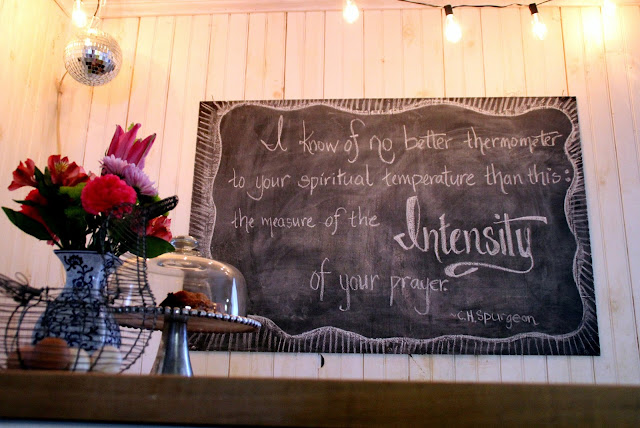 I know of no better thermometer
to your spiritual temperature than this:
the measure of the Intensity
of your prayer.
~C.H. Spurgeon